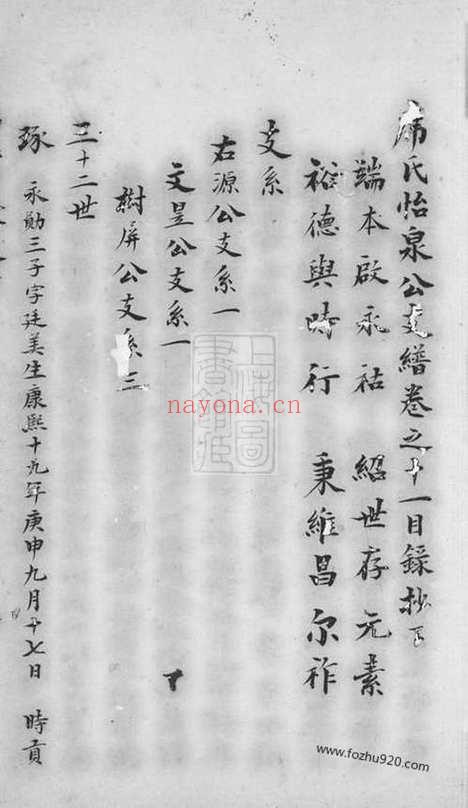 席氏怡泉公支繙卷之十一目錄抄
端本啟永祜 紹世存元素
裕德與時行 秉維昌尔祚
支系
右源公支系一
文昱公支系一
樹屏公支系三
三十二世
琢 永勛三子字廷美生康熙十九年庚申九月十七日 時貢
上海圖書館藏
nayona.cn
www.fozhu920.com